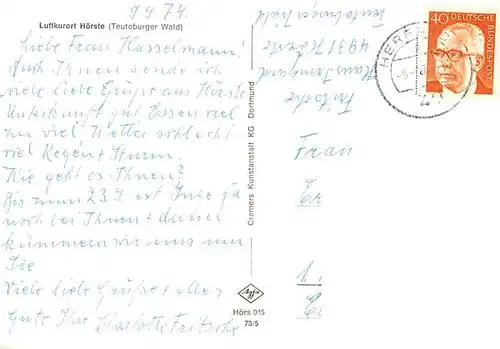 9.9.74.
Luftkurort Hörste (Teutoburger Wald)
Liebe Frau Hasselmann!
Auch Ihnen sende ich
viele liebe Grüße aus Hörste
Unterkunft gut Essen viel
zu viel Wetter schlecht
viel Regen + Sturm.
Wie geht es Ihnen?
Bis zum 23.9. ist Inge ja
noch bei Ihnen + dann
kümmern wir uns um
Sie
Viele liebe Grüße + alles
Gute Ihre Charlotte Fritsche
Cramers Kunstanstalt KG Dortmund
Hörs 015
73/5
Fritsche
4931 Hörste
Teutoburger Wald
Frau
40 DEUTSCHE BUNDESPOST